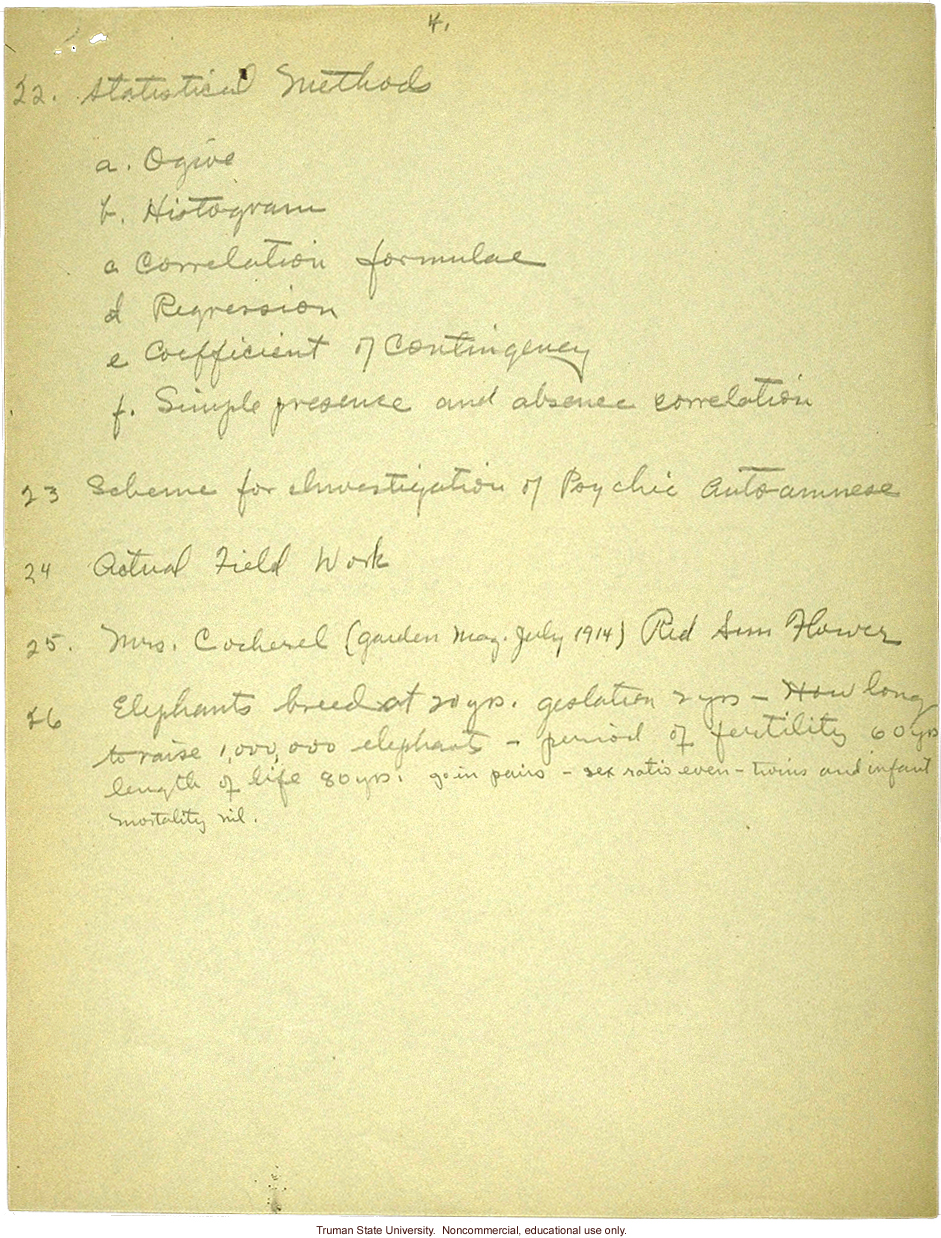 4.
22. Statistical Methods
a. Ogive
b. Histogram
c Correlation formulae
d Regression
e Coefficient of Contingency
f. Simple presence and absence correlation
23 Scheme for Investigation of Psychic Autoamnese
24 Actual Field Work
25. Mrs. Cockerel (garden Mag. July 1914) Red Sun Flower
26 Elephants breed at 20 yrs. gestation 2 yrs - How long
to raise 1,000,000 elephants - period of fertility 60 yrs
length of life 80 yrs. go in pairs - sex ratio even - twins and infant
mortality nil.
Truman State University. Noncommercial, educational use only.